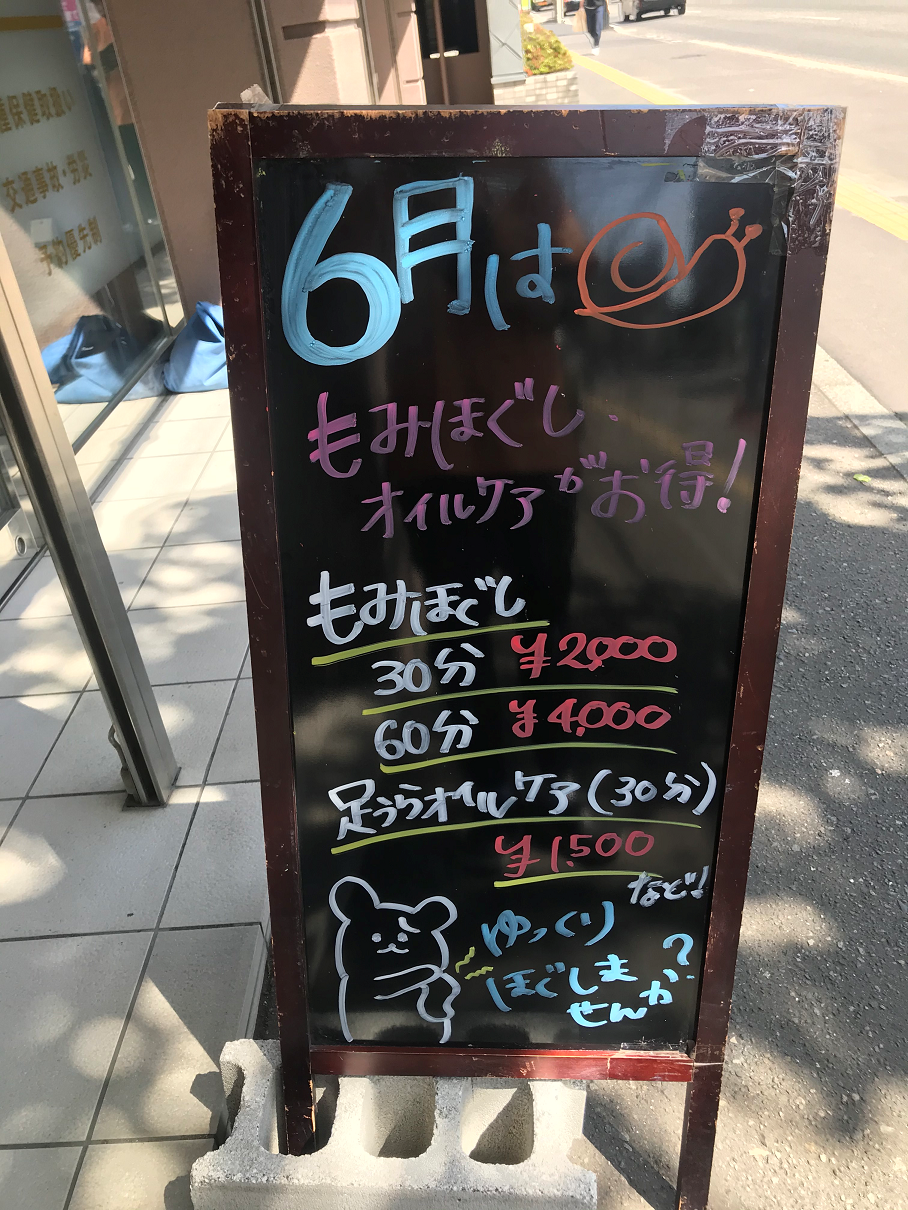 保健取扱い
交通事故・労災
予約優先制
6月は
もみほぐし・
オイルケアがお得!
もみほぐし
30分 ¥2,000
60分 ¥4,000
足うらオイルケア(30分)
¥1,500
など!
ゆっくり
ほぐしま
せんか?